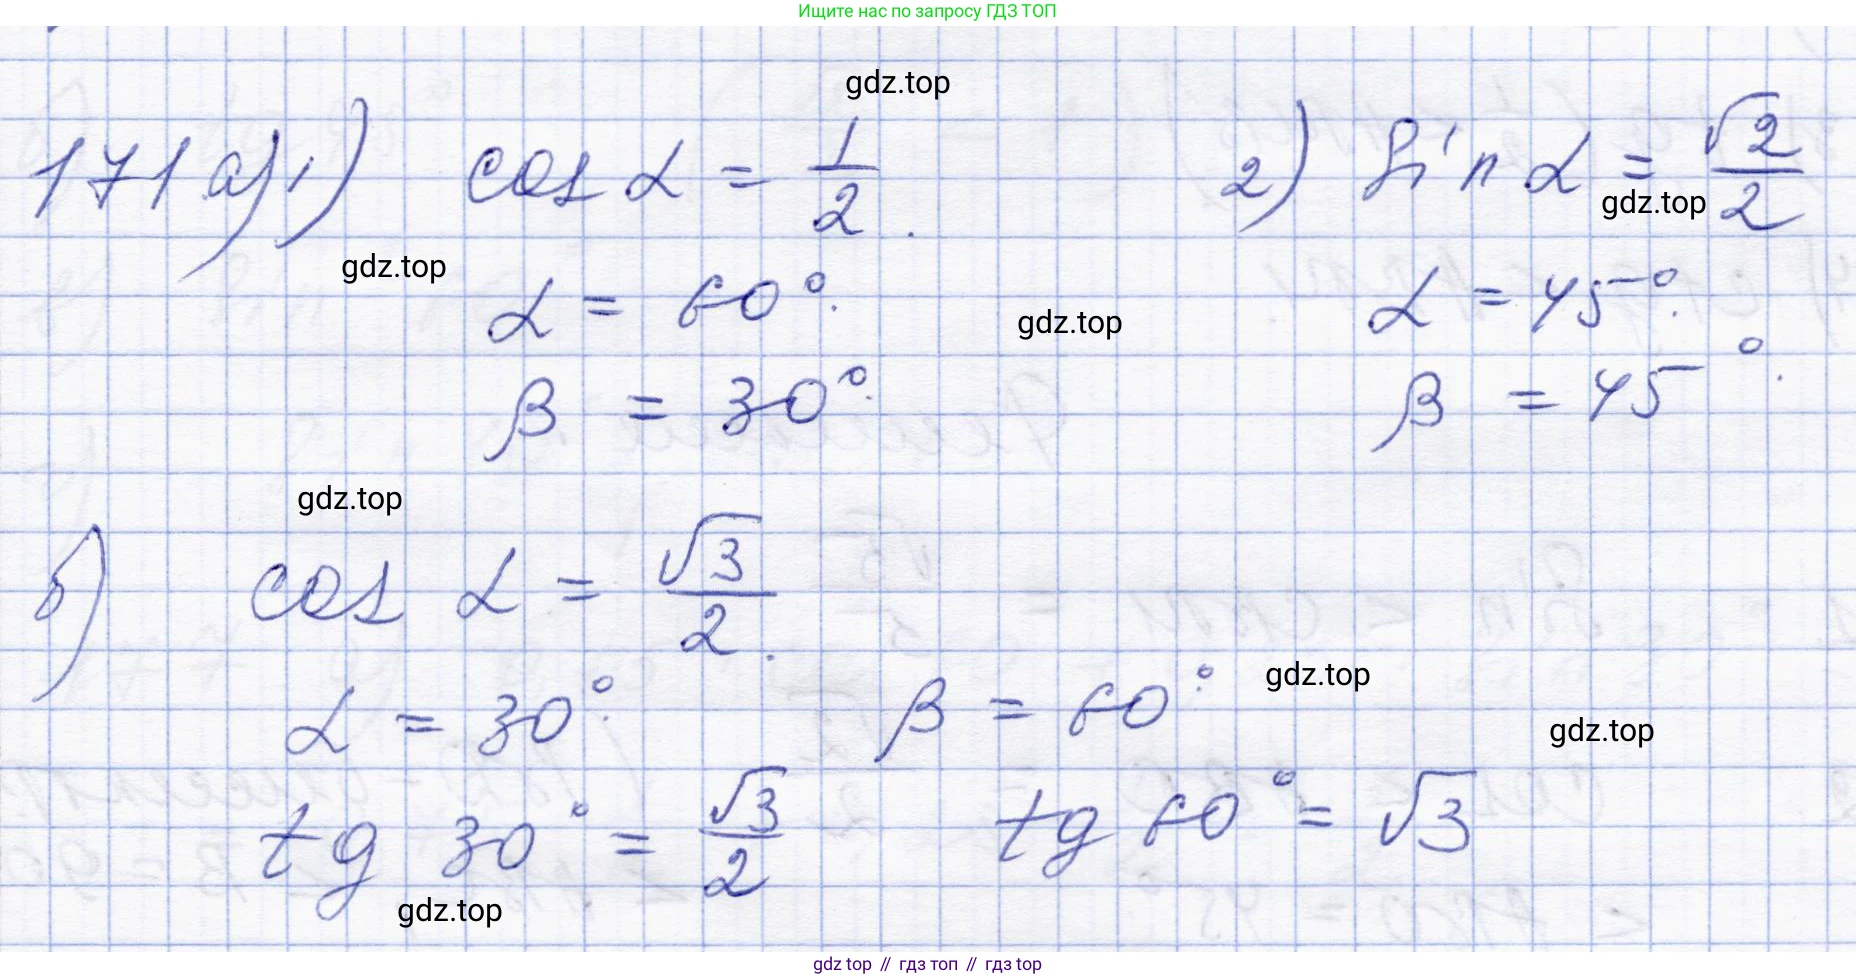 Ищите нас по запросу ГДЗ ТОП
gdz.top
171 а) 1) cos α = 1/2. 2) sin α = √2/2
gdz.top
gdz.top
α = 60°. α = 45°.
gdz.top
β = 30°. β = 45°.
gdz.top
б) cos α = √3/2.
α = 30°. β = 60°.
gdz.top
gdz.top
tg 30° = √3/2 tg 60° = √3
gdz.top
gdz top // гдз топ // гдз top